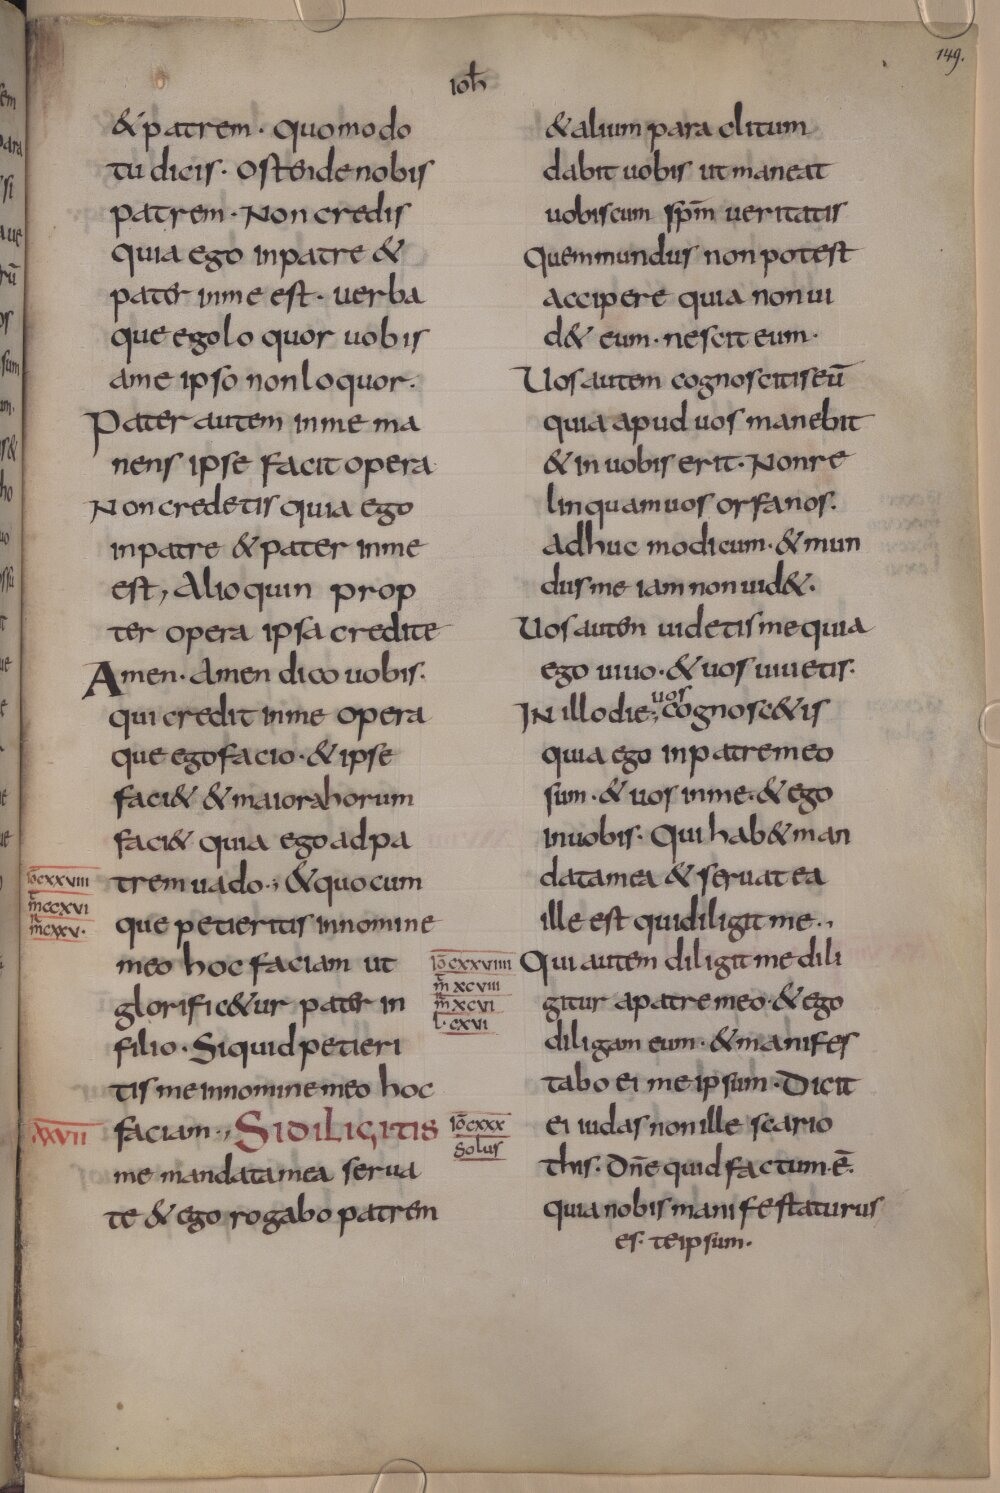 149.
Ioh
& patrem · quomodo
tu dicis · Ostende nobis
patrem · Non credis
quia ego inpatre &
pater inme est · uerba
que ego loquor uobis
ame ipso non loquor ·
Pater autem inme ma
nens ipse facit opera
Non credetis quia ego
inpatre & pater inme
est, Alioquin prop
ter opera ipsa credite
Amen · Amen dico uobis ·
qui credit inme opera
que ego facio · & ipse
faci& & maiora horum
faci& quia ego adpa
trem uado ·, & quocum
que petieritis innomine
meo hoc faciam ut
glorific&ur pater in
filio · Siquid petieri
tis me innomine meo hoc
faciam ·, Sidiligitis
me mandata mea serua
te & ego rogabo patrem
iō cxxviii
m̄ ccxvi
m̄ cxxv ·
· XXVII
& alium paraclitum
dabit uobis ut maneat
uobiscum sp̄m ueritatis
Quem mundus non potest
accipere quia non ui
d& eum · nescit eum ·
Uos autem cognoscitis eū
quia apud uos manebit
& in uobis erit · Non re
linquam uos orfanos ·
adhuc modicum · & mun
dus me iam non uid& ·
Uos autem uidetis me quia
ego uiuo · & uos uiuetis ·
uos
In illo die ·, cognosc&is
quia ego inpatre meo
sum · & uos inme · & ego
inuobis · Qui hab& man
data mea & seruat ea
ille est qui diligit me ·,
Qui autem diligit me dili
gitur apatre meo · & ego
diligam eum · & manifes
tabo ei me ipsum · Dicit
ei iudas non ille scario
this · Dn̄e quid factum · ē ·
quia nobis manifestaturus
es · teipsum ·
iō cxxviiii
m̄ xcviii
m̄ xcvi
l · cxvi
iō cxxx
Solus